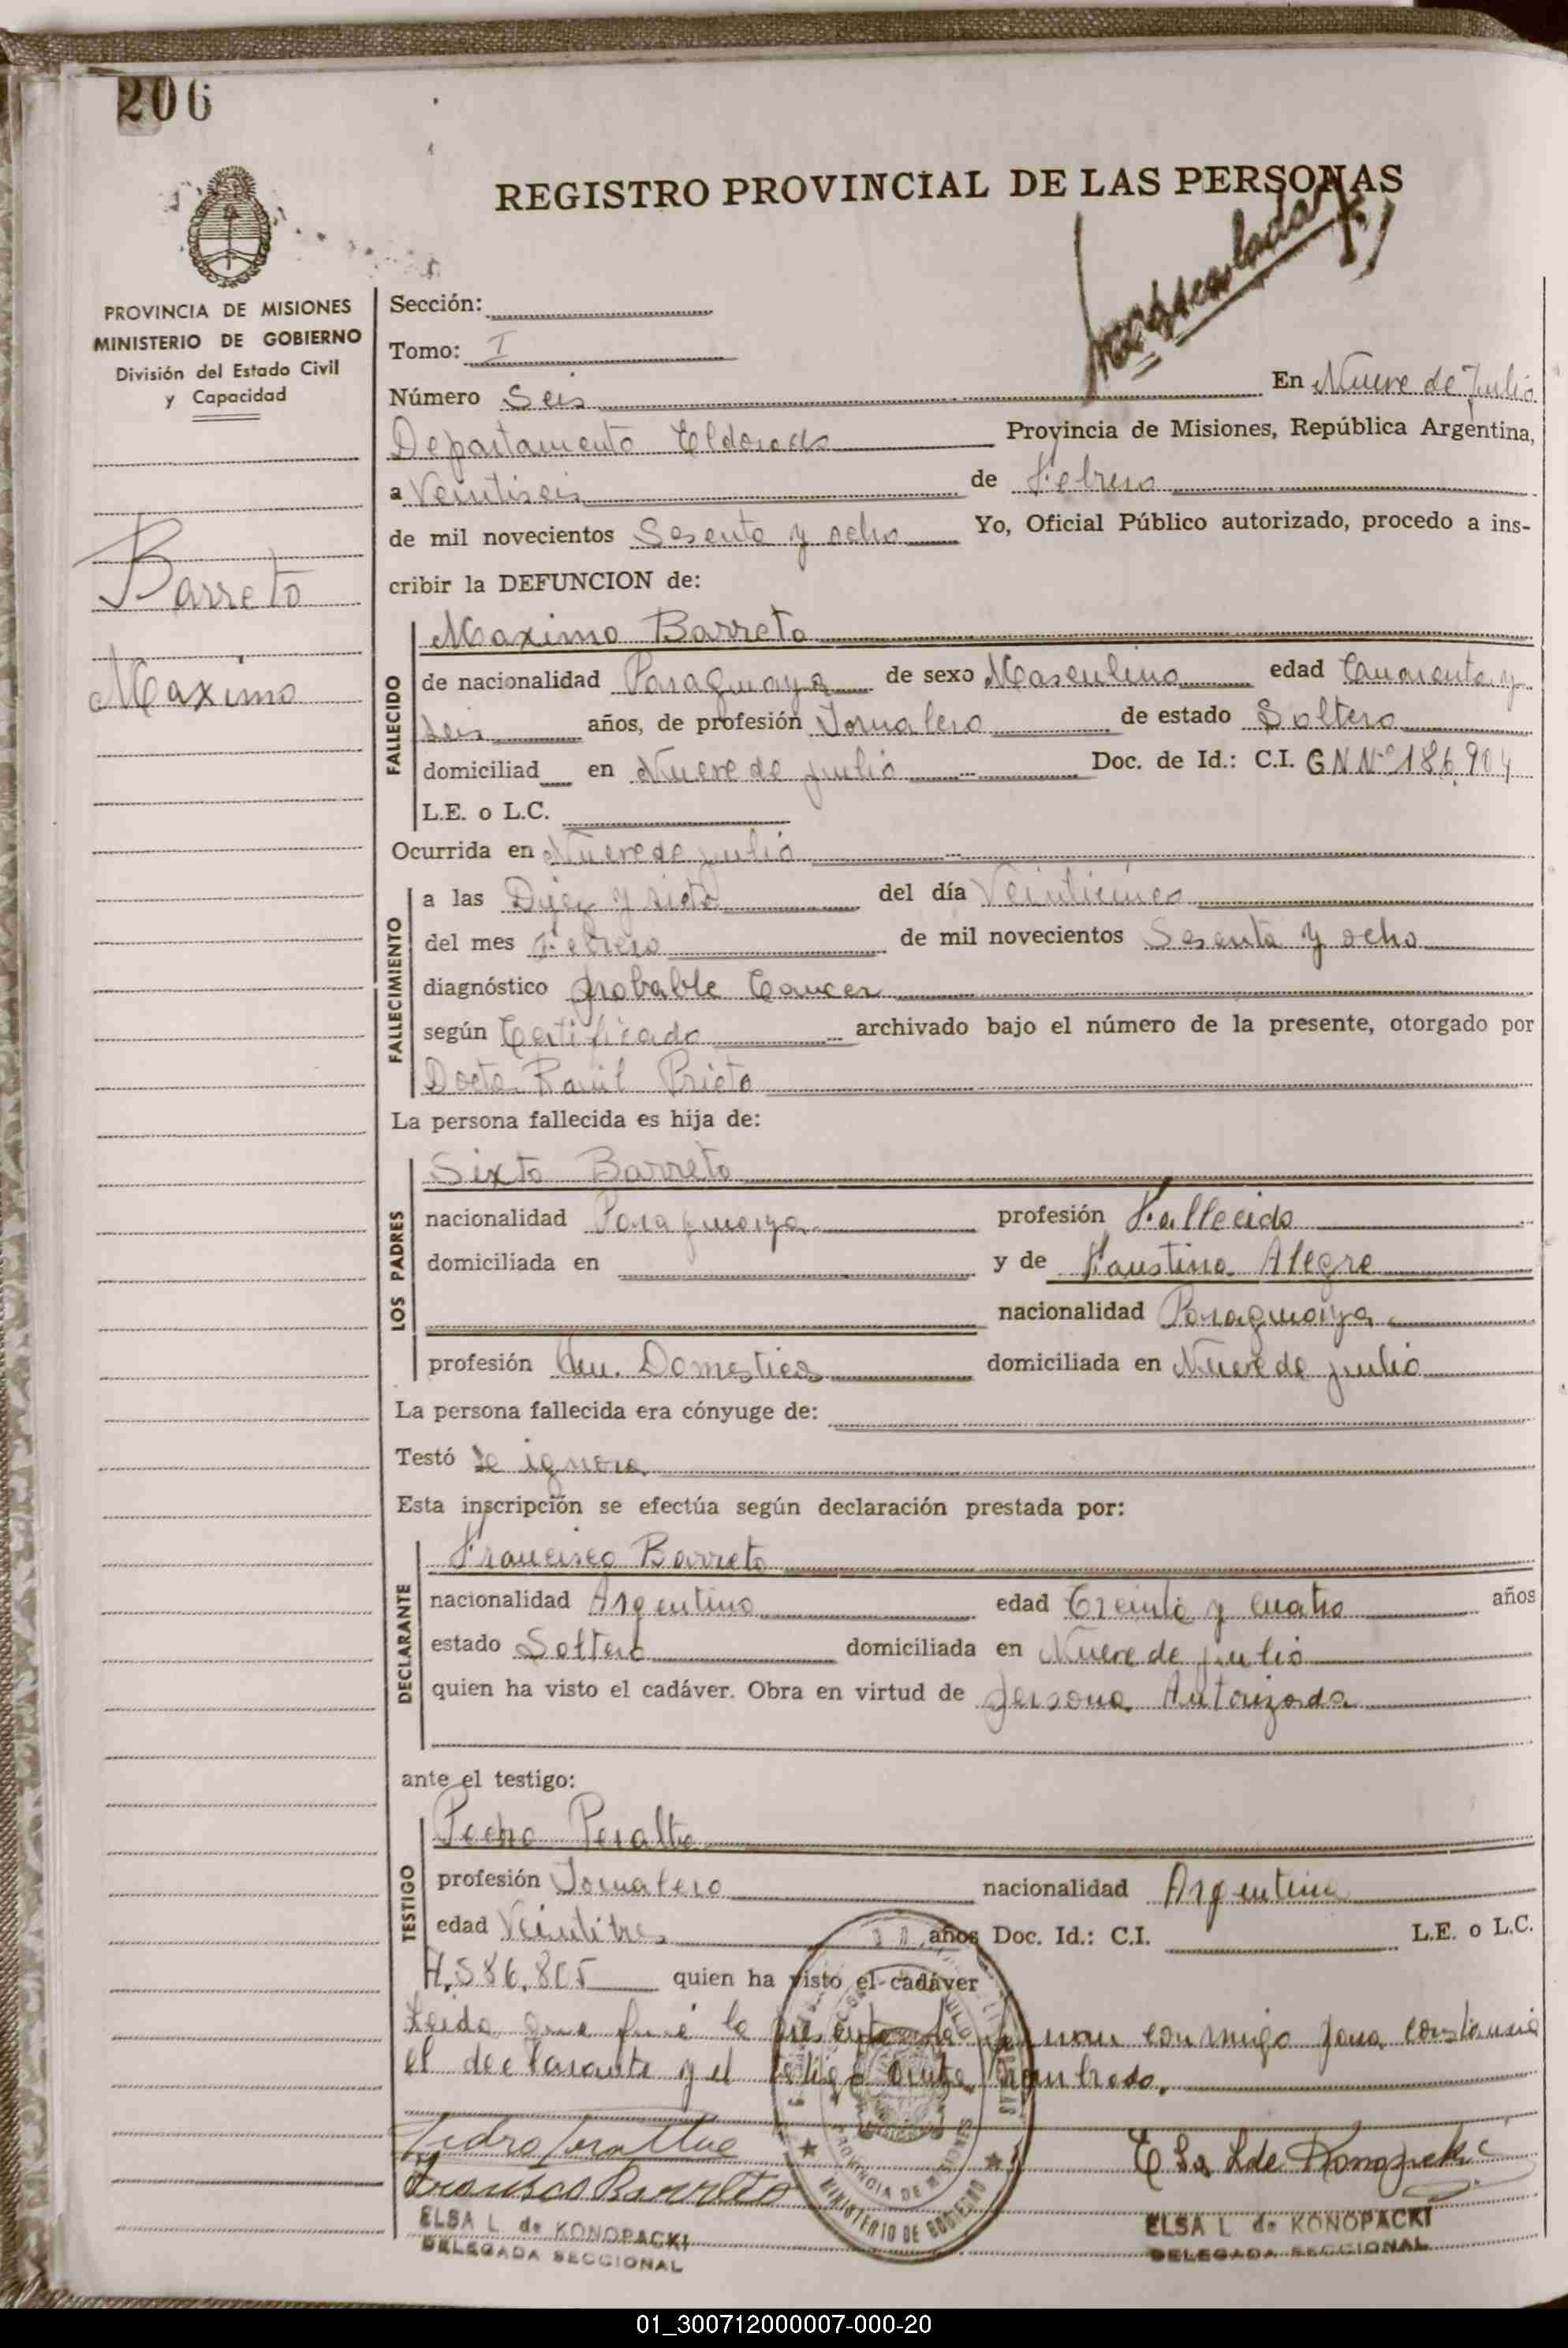 206
REGISTRO PROVINCIAL DE LAS PERSONAS
PROVINCIA DE MISIONES
MINISTERIO DE GOBIERNO
División del Estado Civil
y Capacidad
Barreto
Maximo
Sección:
Tomo: I
Número Seis En Nueve de Julio
Departamento Eldorado Provincia de Misiones, República Argentina,
a Veintiseis de Febrero
de mil novecientos Sesenta y ocho Yo, Oficial Público autorizado, procedo a ins-
cribir la DEFUNCION de:
FALLECIDO
Maximo Barreto
de nacionalidad Paraguaya de sexo Masculino edad Cuarenta y
seis años, de profesión Jornalero de estado Soltero
domiciliad en Nueve de julio Doc. de Id.: C.I. GNNº186.904
L.E. o L.C.
Ocurrida en Nueve de julio
FALLECIMIENTO
a las Diez y siete del día Veinticinco
del mes Febrero de mil novecientos Sesenta y ocho
diagnóstico probable Cancer
según Certificado archivado bajo el número de la presente, otorgado por
Doctor Raúl Prieto
La persona fallecida es hija de:
LOS PADRES
Sixto Barreto
nacionalidad Paraguaya profesión Fallecido
domiciliada en y de Faustina Alegre
nacionalidad Paraguaya
profesión Domestica domiciliada en Nueve de julio
La persona fallecida era cónyuge de:
Testó se ignora
Esta inscripción se efectúa según declaración prestada por:
DECLARANTE
Francisco Barreto
nacionalidad Argentino edad Treinta y cuatro años
estado Soltero domiciliada en Nueve de julio
quien ha visto el cadáver. Obra en virtud de persona Autorizada
ante el testigo:
TESTIGO
Pedro Peralta
profesión Jornalero nacionalidad Argentina
edad Veintitres años Doc. Id.: C.I. L.E. o L.C.
4.586.805 quien ha visto el cadáver
Leida que fué la presente la firman conmigo para constancia
el declarante y el testigo ante nombrado.
Pedro Peralta
Francisco Barreto
Elsa L de Konopacki
PROVINCIA DE MISIONES
MINISTERIO DE GOBIERNO
ELSA L. de KONOPACKI
DELEGADA SECCIONAL
ELSA L. de KONOPACKI
DELEGADA SECCIONAL
01_300712000007-000-20